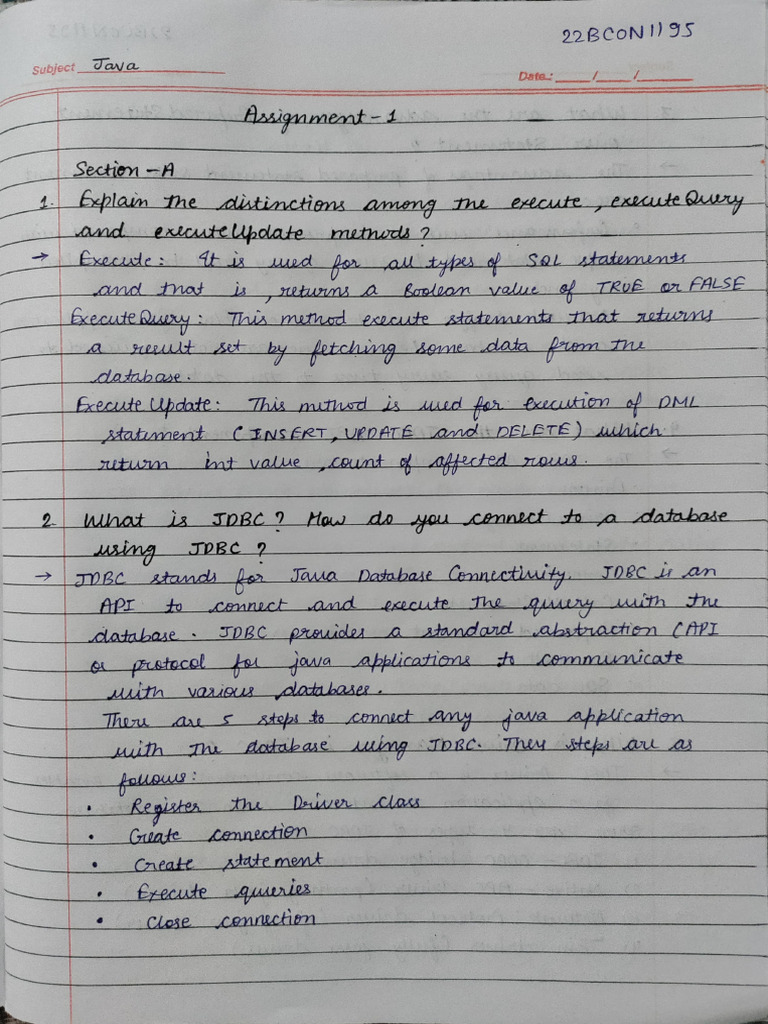 22BCON1195
Subject Java
Date: ___/___/___
Assignment-1
Section-A
1. Explain the distinctions among the execute, executeQuery
and executeUpdate methods?
→ Execute: It is used for all types of SQL statements
and that is, returns a Boolean value of TRUE or FALSE
ExecuteQuery: This method execute statements that returns
a result set by fetching some data from the
database.
Execute Update: This method is used for execution of DML
statement (INSERT, UPDATE and DELETE) which
return int value, count of affected rows.
2. What is JDBC? How do you connect to a database
using JDBC?
→ JDBC stands for Java Database Connectivity. JDBC is an
API to connect and execute the query with the
database. JDBC provides a standard abstraction (API
or protocol for java applications to communicate
with various databases.
There are 5 steps to connect any java application
with the database using JDBC. They steps are as
follows:
• Register the Driver class
• Create connection
• Create statement
• Execute queries
• Close connection